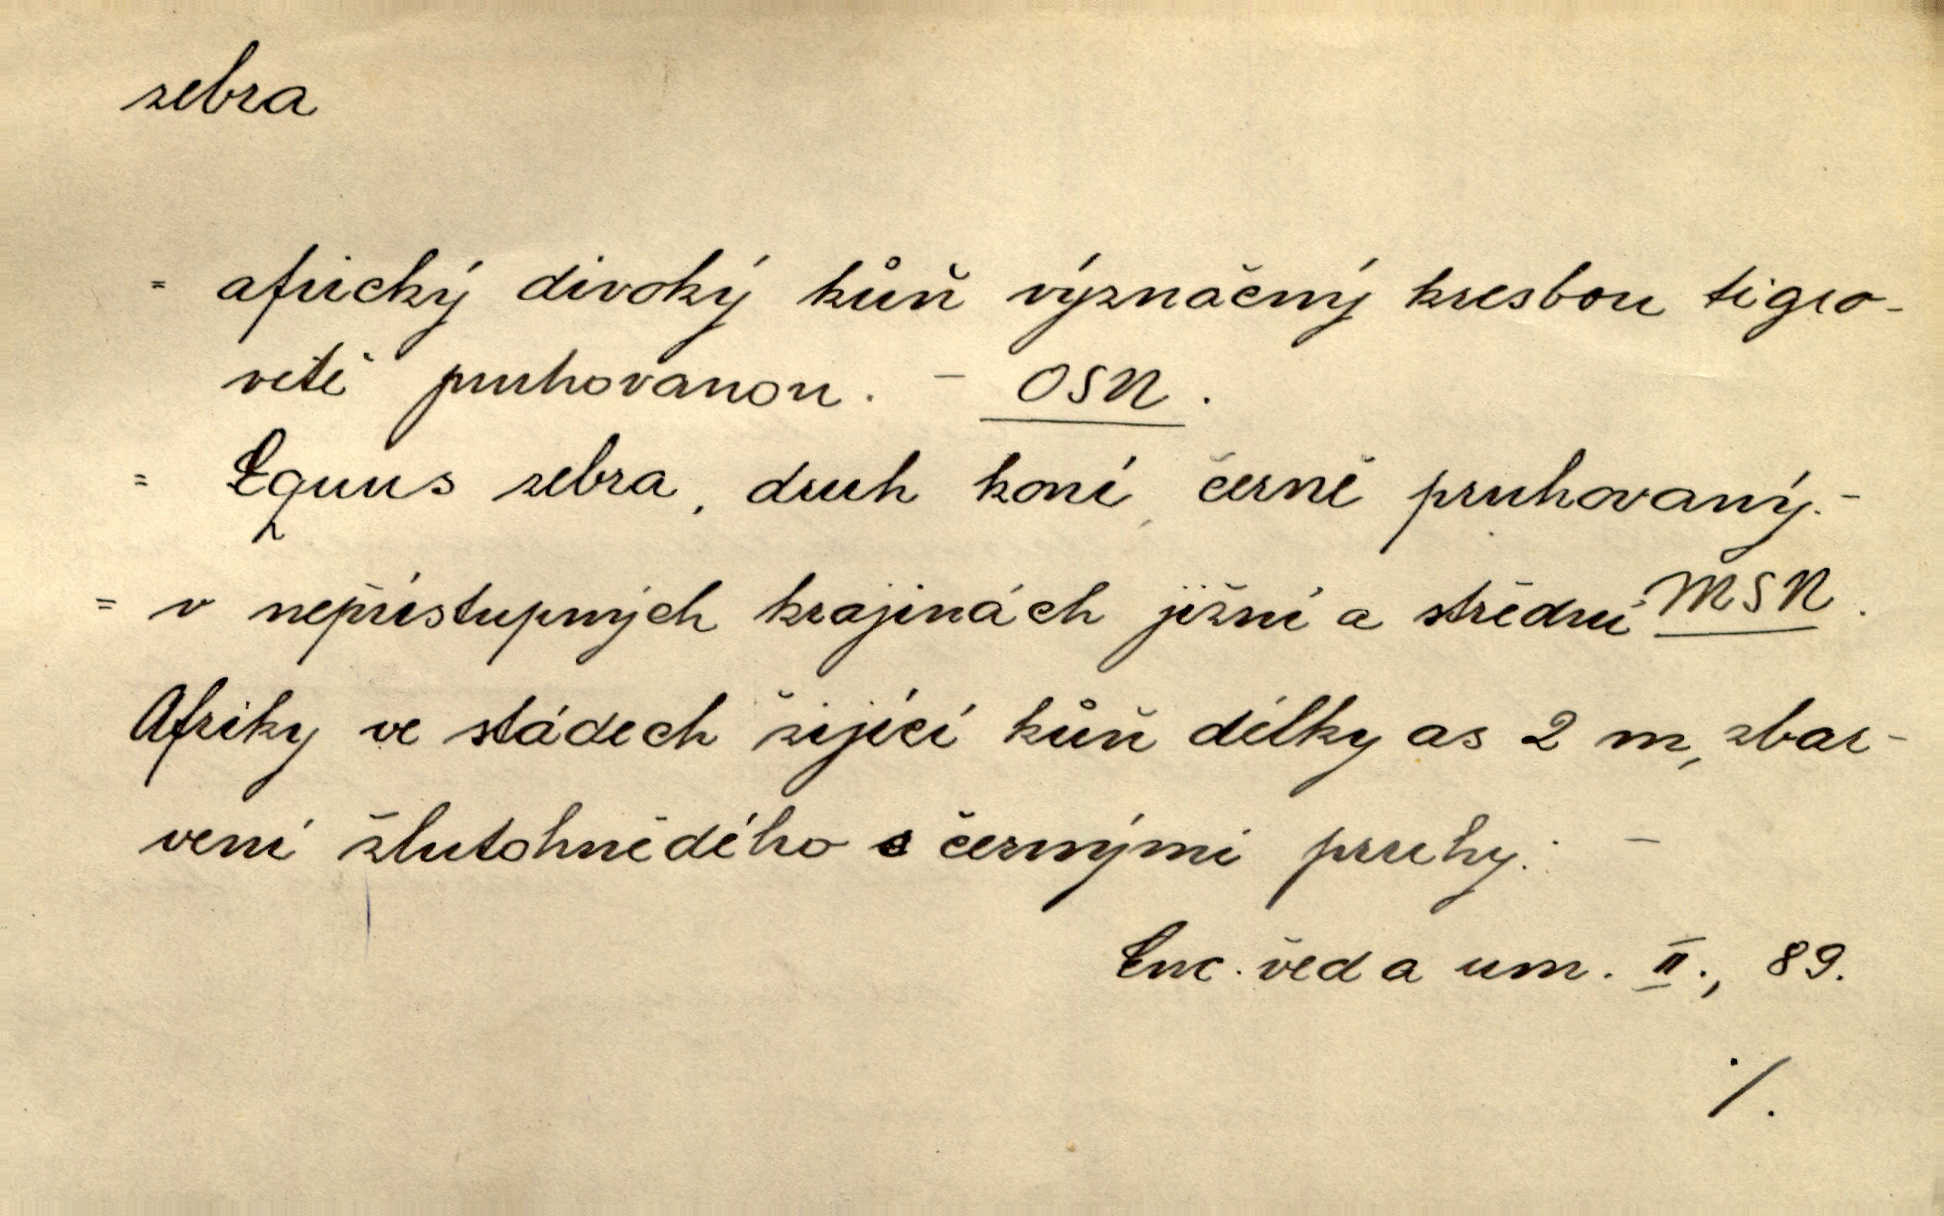 zebra
= africký divoký kůň význačný kresbou tigro-
vitě pruhovanou. – OSN.
= Equus zebra, druh koní, černě pruhovaný. –
MSN.
= v nepřístupných krajinách jižní a střední
Afriky ve stádech žijící kůň délky as 2 m, zbar-
vení žlutohnědého s černými pruhy. –
Enc. věd a um. II., 89.
./.